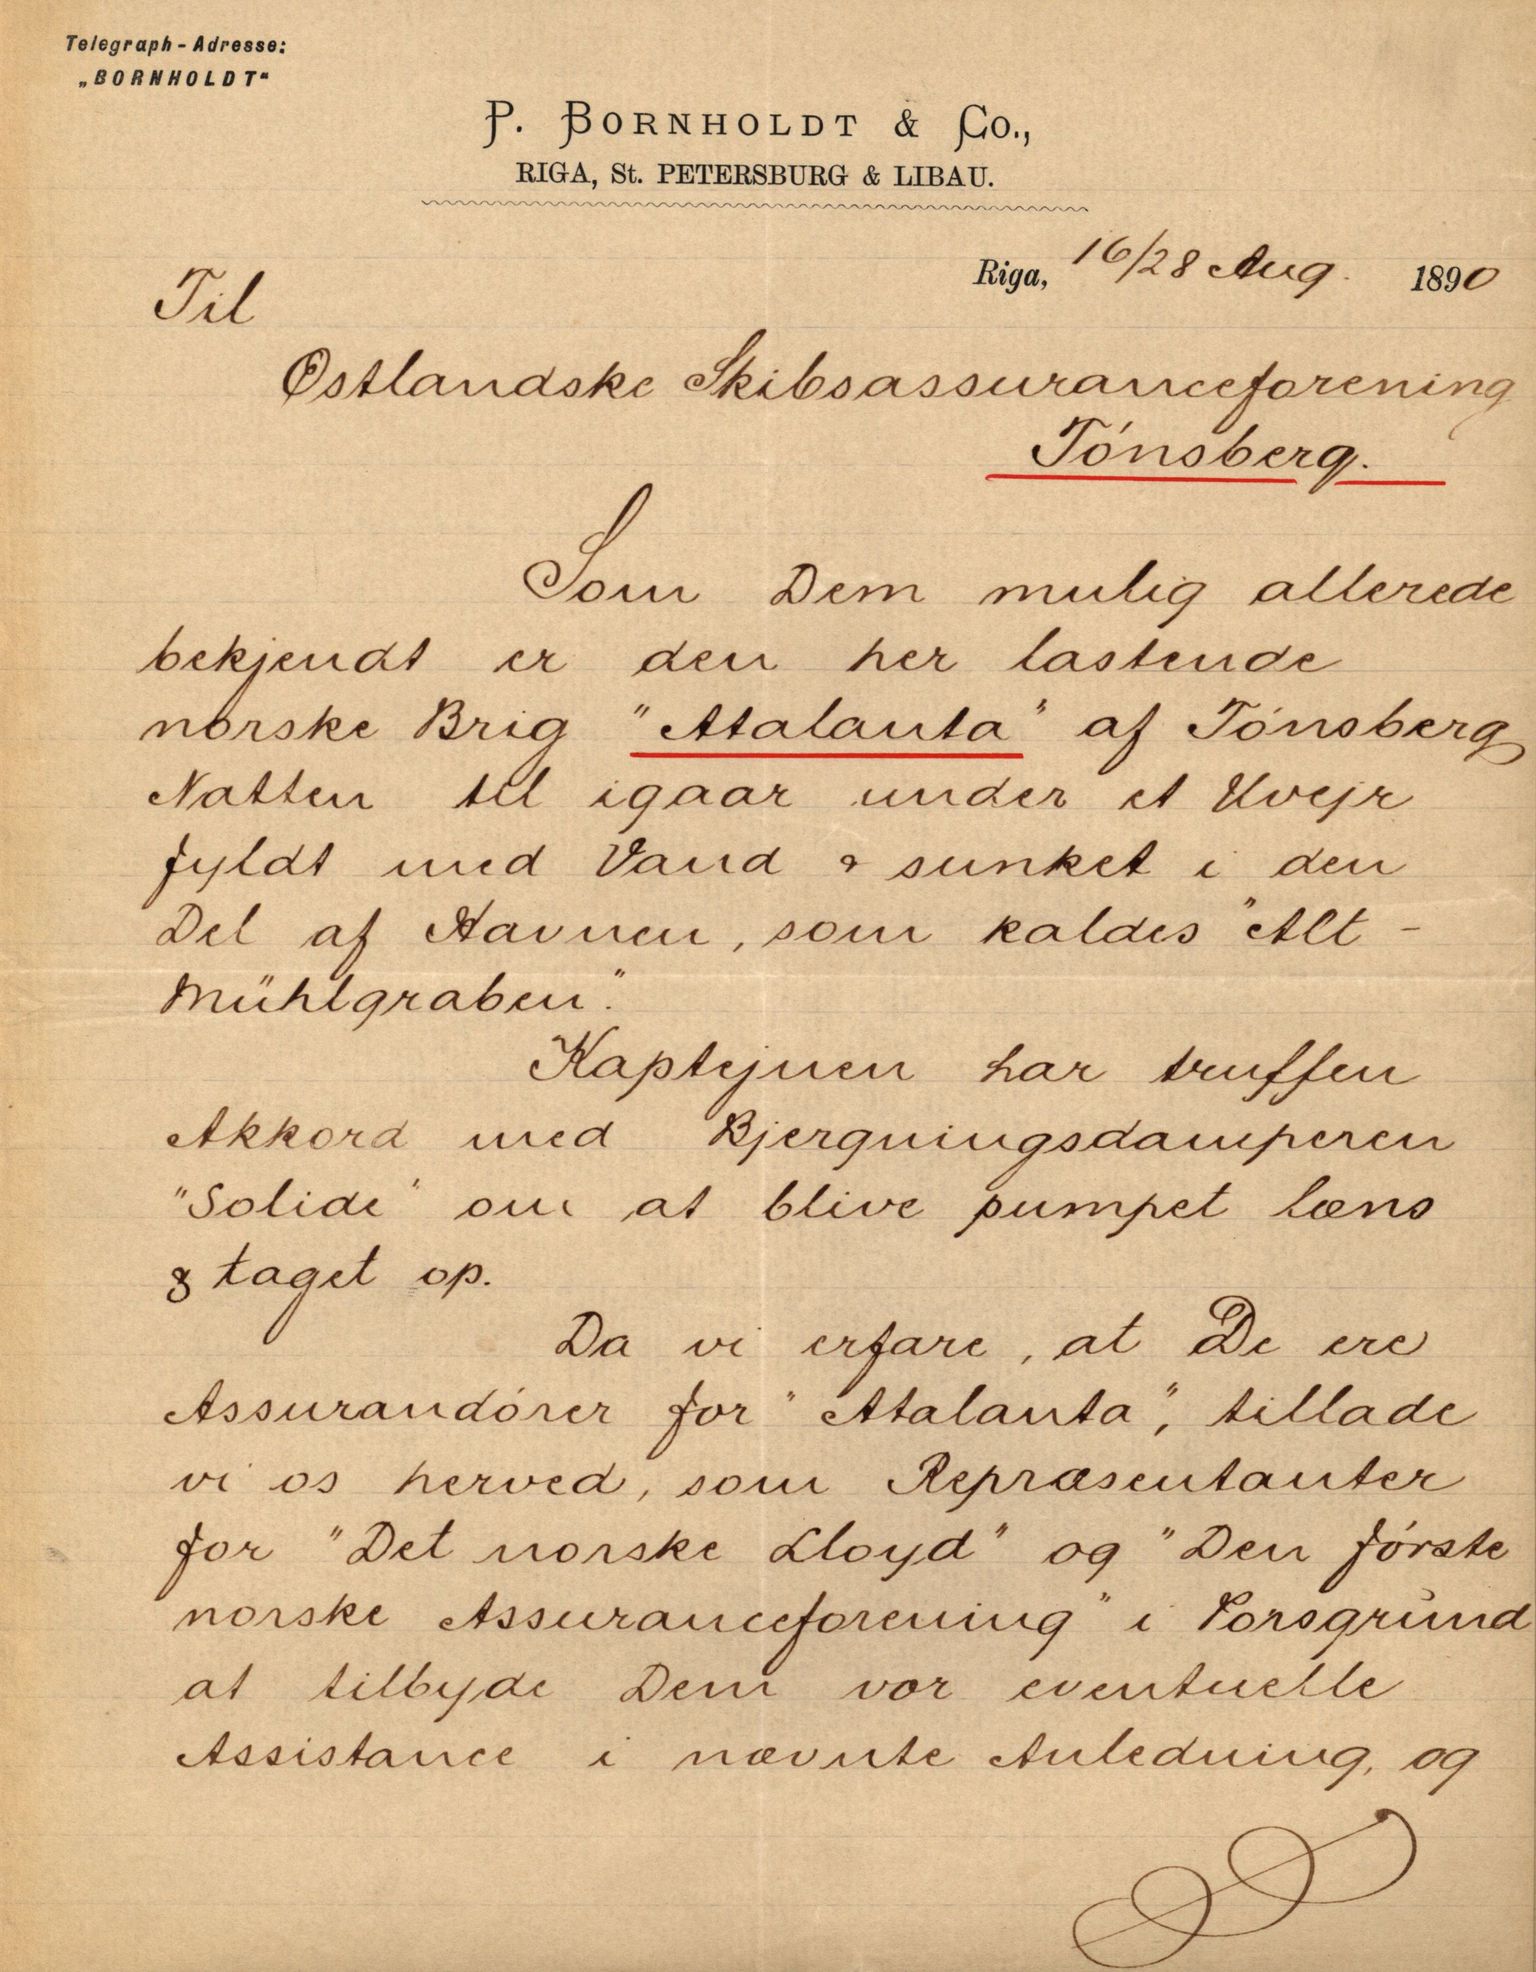 Telegraph-Adresse:
„BORNHOLDT“
P. BORNHOLDT & Co.,
RIGA, St. PETERSBURG & LIBAU.
Riga, 16/28 Aug. 1890
Til
Østlandske Skibsassuranceforening
Tónsberg.
Som Dem mulig allerede
bekjendt er den her lastende
norske Brig "Atalanta" af Tónsberg
Natten til igaar under et Uvejr
fyldt med Vand & sunket i den
Del af Havnen, som kaldes "Alt-
Mühlgraben".
Kaptejnen har truffen
Akkord med Bjergningsdamperen
"Solide" om at blive pumpet læns
& taget op.
Da vi erfare, at De ere
Assurandórer for "Atalanta", tillade
vi os herved, som Repræsentanter
for "Det norske Lloyd" og "Den fórste
norske Assuranceforening" i Porsgrund
at tilbyde Dem vor eventuelle
Assistance i nævnte Anledning, og